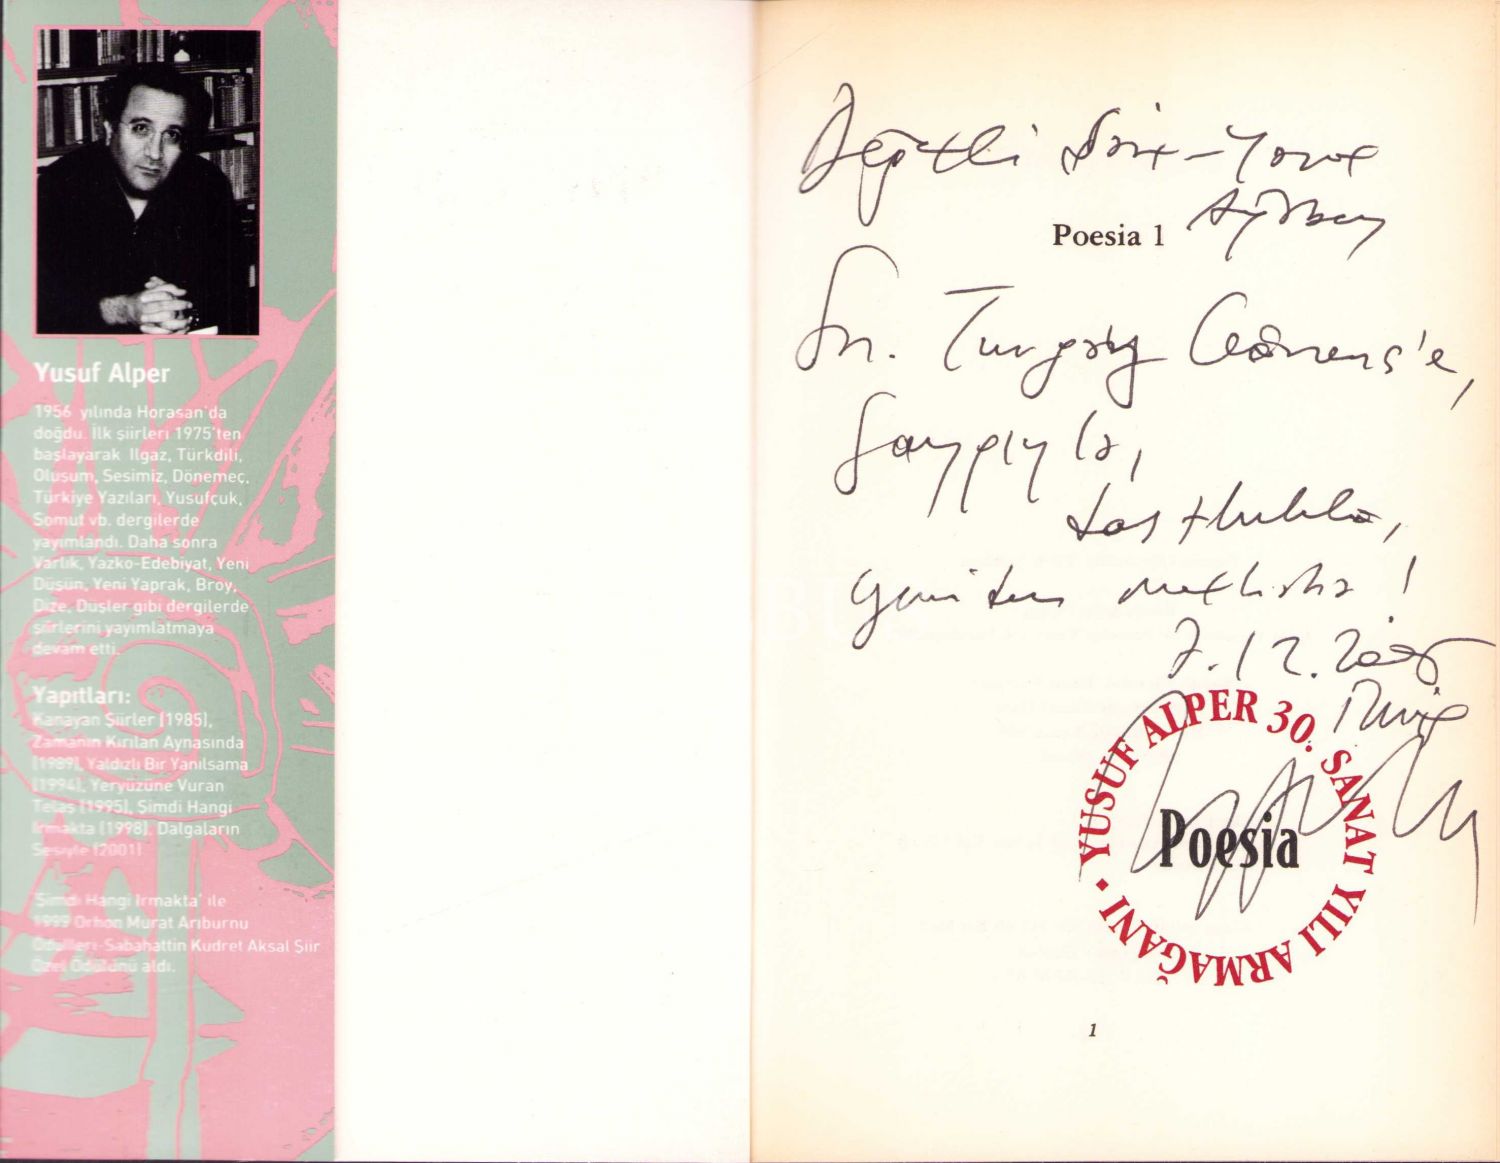 Yusuf Alper
1956 yılında Horasan'da
doğdu. İlk şiirleri 1975'ten
başlayarak Ilgaz, Türkdili,
Oluşum, Sesimiz, Dönemeç,
Türkiye Yazıları, Yusufçuk,
Somut vb. dergilerde
yayımlandı. Daha sonra
Varlık, Yazko-Edebiyat, Yeni
Düşün, Yeni Yaprak, Broy,
Dize, Düşler gibi dergilerde
şiirlerini yayımlatmaya
devam etti.
Yapıtları:
Kanayan Şiirler (1985),
Zamanın Kırılan Aynasında
(1989), Yaldızlı Bir Yanılsama
(1994), Yeryüzüne Vuran
Telaş (1995), Şimdi Hangi
Irmakta (1998), Dalgaların
Sesiyle (2001)
'Şimdi Hangi Irmakta' ile
1999 Orhon Murat Arıburnu
Ödülleri-Sabahattin Kudret Aksal Şiir
Özel Ödülünü aldı.
Değerli
Poesia 1
Sn. Turgay Gönenç'e,
Saygıyla,
dostlukla,
yeniden merhaba!
7.12.2005
YUSUF ALPER 30. SANAT YILI ARMAĞANI •
Poesia
1